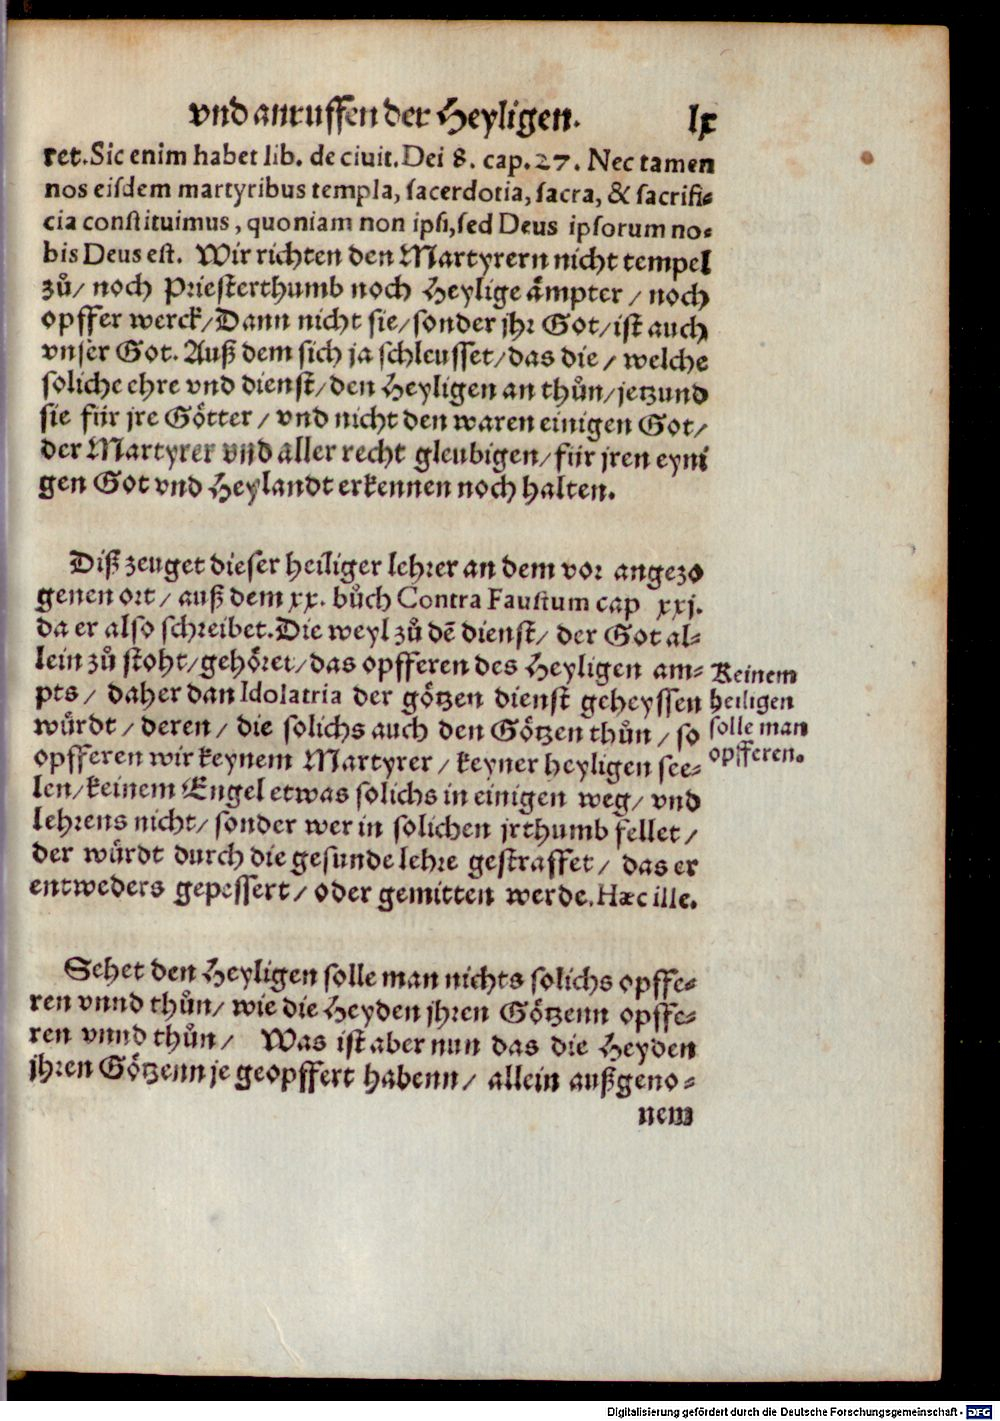 vnd anruffen der Heyligen. lx
ret. Sic enim habet lib. de ciuit. Dei 8. cap. 27. Nec tamen
nos eisdem martyribus templa, sacerdotia, sacra, & sacrifi-
cia constituimus, quoniam non ipsi, sed Deus ipsorum no-
bis Deus est. Wir richten den Martyrern nicht tempel
zů/ noch Priesterthumb noch Heylige åmpter / noch
opffer werck/ Dann nicht sie/ sonder jhr Got/ ist auch
vnser Got. Auß dem sich ja schleusset/ das die / welche
soliche ehre vnd dienst/ den Heyligen an thůn/ jetzund
sie für jre Götter / vnd nicht den waren einigen Got/
der Martyrer vnd aller recht gleubigen/ für jren eyni
gen Got vnd Heylandt erkennen noch halten.
Diß zeuget dieser heiliger lehrer an dem vor angezo
genen ort/ auß dem xx. bůch Contra Faustum cap xxj.
da er also schreibet. Die weyl zů dē dienst/ der Got al-
lein zů stoht/ gehöret/ das opfferen des Heyligen am-
pts/ daher dan Idolatria der götzen dienst geheyssen
würdt/ deren/ die solichs auch den Götzen thůn/ so
opfferen wir keynem Martyrer/ keyner heyligen see-
len/ keinem Engel etwas solichs in einigen weg/ vnd
lehrens nicht/ sonder wer in solichen jrthumb fellet/
der würdt durch die gesunde lehre gestraffet/ das er
entweders gepessert/ oder gemitten werde. Hæc ille.
Keinem
heiligen
solle man
opfferen.
Sehet den Heyligen solle man nichts solichs opffe-
ren vnnd thůn/ wie die Heyden jhren Götzenn opffe-
ren vnnd thůn/ Was ist aber nun das die Heyden
jhren Götzenn je geopffert habenn/ allein außgeno-
nem
Digitalisierung gefördert durch die Deutsche Forschungsgemeinschaft - DFG